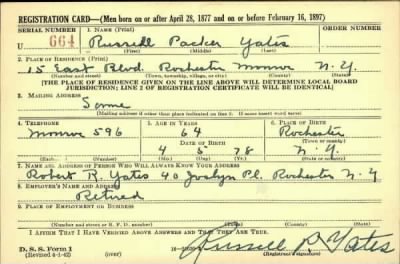 REGISTRATION CARD—(Men born on or after April 28, 1877 and on or before February 16, 1897)
SERIAL NUMBER 1. NAME (Print) ORDER NUMBER
U 664 Russell Packer Yates
(First) (Middle) (Last)
2. PLACE OF RESIDENCE (Print)
15 East Blvd. Rochester Monroe N.Y.
(Number and street) (Town, township, village, or city) (County) (State)
[THE PLACE OF RESIDENCE GIVEN ON THE LINE ABOVE WILL DETERMINE LOCAL BOARD
JURISDICTION; LINE 2 OF REGISTRATION CERTIFICATE WILL BE IDENTICAL]
3. MAILING ADDRESS
Same
(Mailing address if other than place indicated on line 2. If same insert word same)
4. TELEPHONE 5. AGE IN YEARS 6. PLACE OF BIRTH
Monroe 596 64 Rochester
DATE OF BIRTH (Town or county)
4 5 78 N.Y.
(Exchange) (Number) (Mo.) (Day) (Yr.) (State or country)
7. NAME AND ADDRESS OF PERSON WHO WILL ALWAYS KNOW YOUR ADDRESS
Robert R. Yates 40 Joslyn Pl. Rochester N.Y
8. EMPLOYER'S NAME AND ADDRESS
Retired
9. PLACE OF EMPLOYMENT OR BUSINESS
(Number and street or R. F. D. number) (Town) (County) (State)
I AFFIRM THAT I HAVE VERIFIED ABOVE ANSWERS AND THAT THEY ARE TRUE.
D. S. S. Form 1
(Revised 4-1-42) (over) Russell P. Yates
(Registrant's signature)